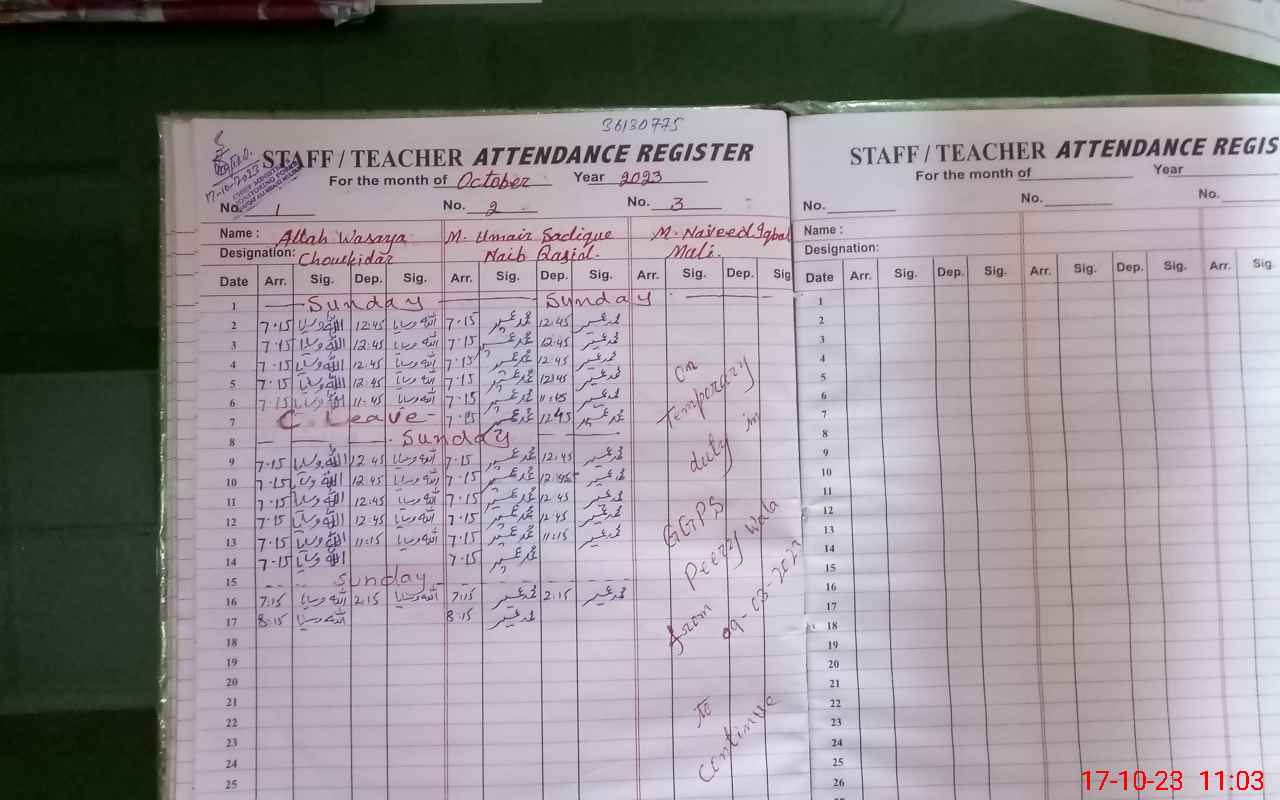 36130775
STAFF / TEACHER ATTENDANCE REGISTER
For the month of October Year 2023
17-10-2023
No. 1 No. 2 No. 3
Name : Allah Wasaya M. Umair Sadique M. Naveed Iqbal
Designation: Chowkidar Naib Qasid. Mali.
Date Arr. Sig. Dep. Sig. Arr. Sig. Dep. Sig. Arr. Sig. Dep. Sig
1 Sunday Sunday
2 7.15 اللہ وسایا 12:45 اللہ وسایا 7.15 محمد عمیر 12:45 محمد عمیر
3 7.15 اللہ وسایا 12:45 اللہ وسایا 7.15 محمد عمیر 12:45 محمد عمیر
4 7.15 اللہ وسایا 12:45 اللہ وسایا 7.15 محمد عمیر 12:45 محمد عمیر
5 7.15 اللہ وسایا 12:45 اللہ وسایا 7.15 محمد عمیر 12:45 محمد عمیر
6 7.15 اللہ وسایا 11:45 اللہ وسایا 7.15 محمد عمیر 11:45 محمد عمیر
7 C. Leave 7.15 محمد عمیر 12:45 محمد عمیر
8 Sunday
9 7.15 اللہ وسایا 12:45 اللہ وسایا 7.15 محمد عمیر 12:45 محمد عمیر
10 7.15 اللہ وسایا 12:45 اللہ وسایا 7.15 محمد عمیر 12:45 محمد عمیر
11 7.15 اللہ وسایا 12:45 اللہ وسایا 7.15 محمد عمیر 12:45 محمد عمیر
12 7.15 اللہ وسایا 12:45 اللہ وسایا 7.15 محمد عمیر 12:45 محمد عمیر
13 7.15 اللہ وسایا 11:15 اللہ وسایا 7.15 محمد عمیر 11:15 محمد عمیر
14 7.15 اللہ وسایا 7.15 محمد عمیر
15 Sunday
16 7:15 اللہ وسایا 2:15 اللہ وسایا 7:15 محمد عمیر 2:15 محمد عمیر
17 8:15 اللہ وسایا 8:15 محمد عمیر
18
19
20
21
22
23
24
25
on
Temporary
duty in
GGPS
Peery Wala
from 09-08-2023
to
Continue
STAFF / TEACHER ATTENDANCE REGIS
For the month of Year
No. No. No.
Name :
Designation:
Date Arr. Sig. Dep. Sig. Arr. Sig. Dep. Sig. Arr. Sig.
1
2
3
4
5
6
7
8
9
10
11
12
13
14
15
16
17
18
19
20
21
22
23
24
25
26
17-10-23 11:03